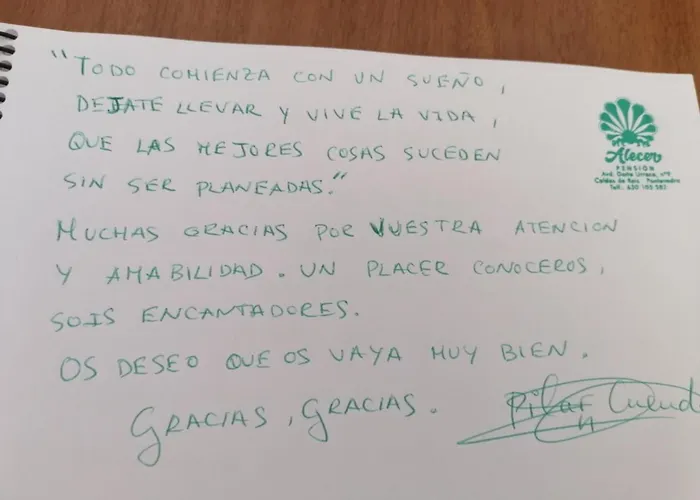 "TODO COMIENZA CON UN SUEÑO,
DEJATE LLEVAR Y VIVE LA VIDA,
QUE LAS MEJORES COSAS SUCEDEN
SIN SER PLANEADAS."
MUCHAS GRACIAS POR VUESTRA ATENCION
Y AMABILIDAD. UN PLACER CONOCEROS,
SOIS ENCANTADORES.
OS DESEO QUE OS VAYA MUY BIEN.
GRACIAS, GRACIAS.
Pilar
Alecer
PENSIÓN
Caldas de Reis Pontevedra